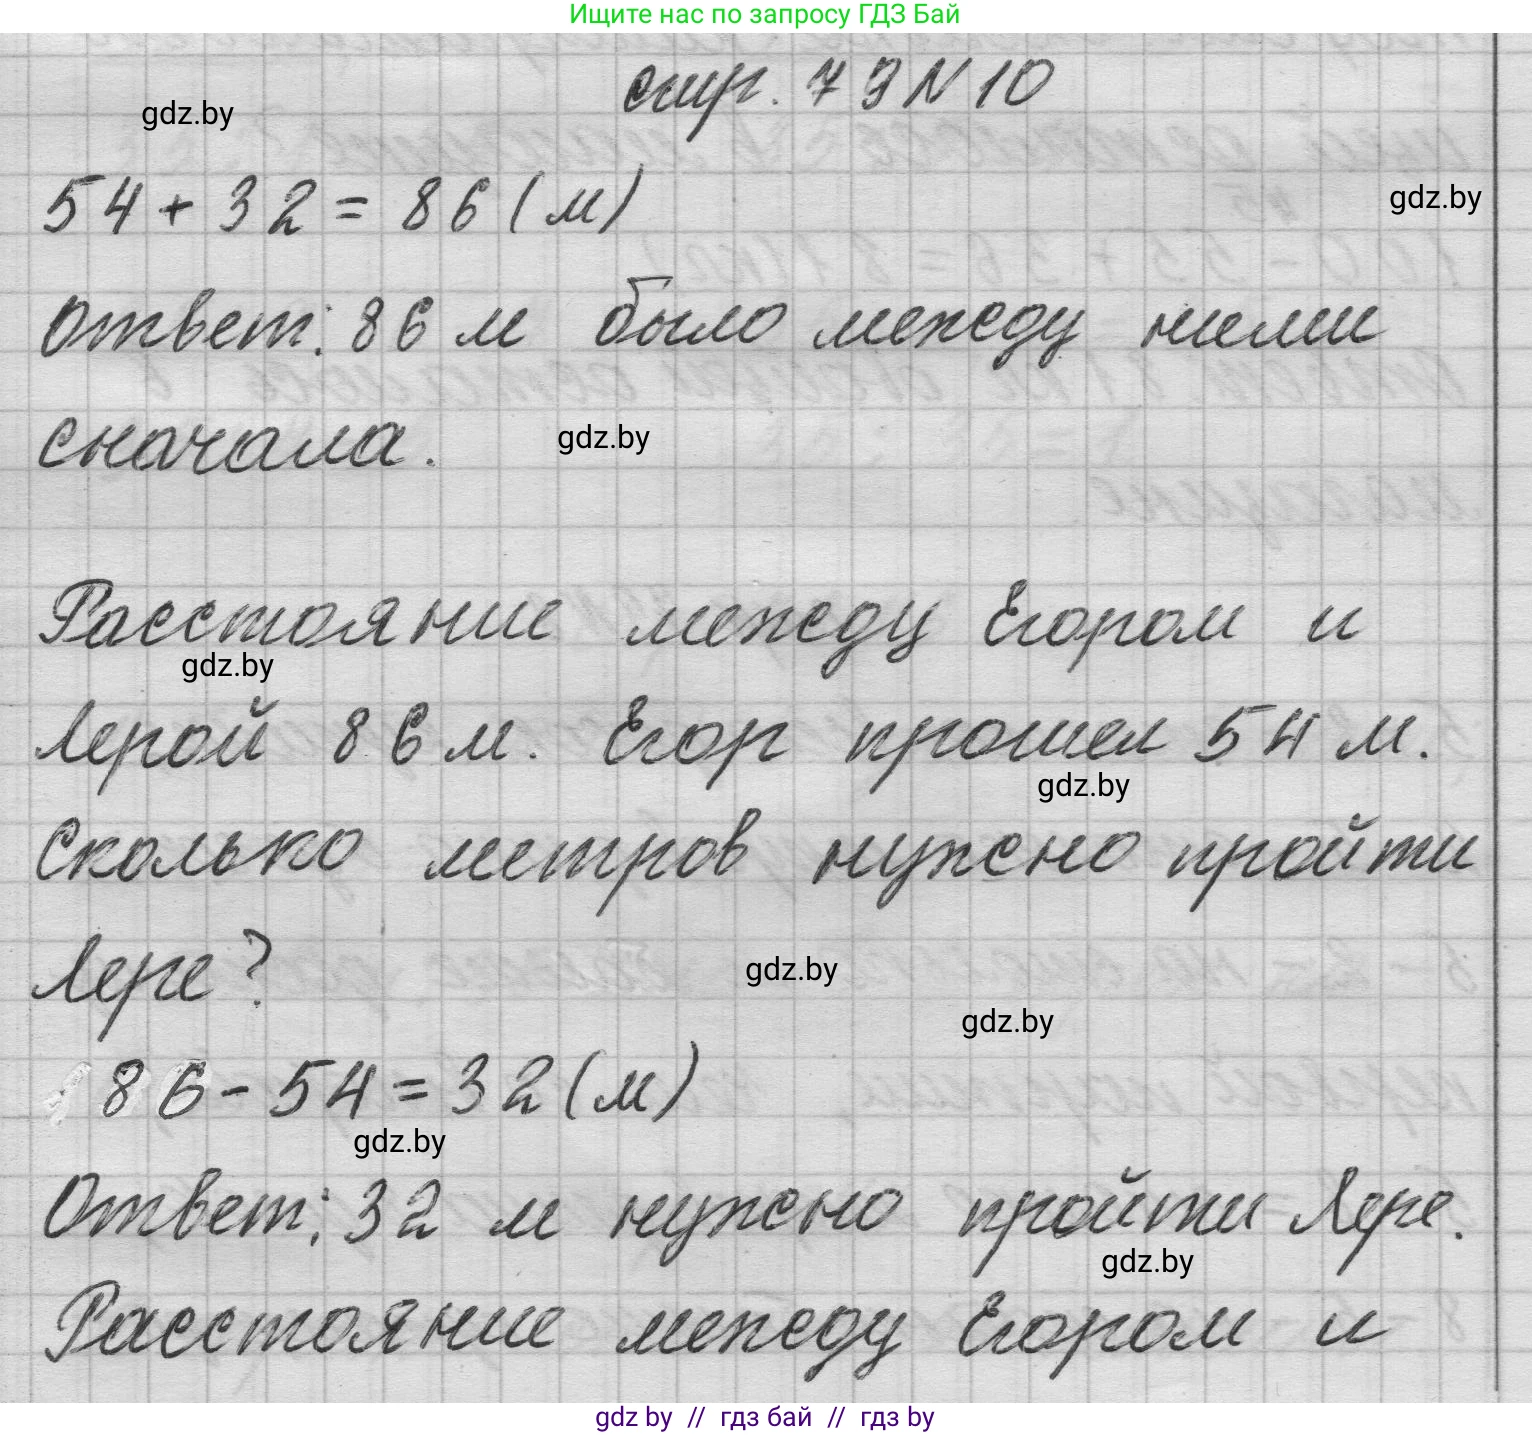 Ищите нас по запросу ГДЗ Бай
стр. 79 N 10
gdz.by
54 + 32 = 86 (м)
gdz.by
Ответ: 86 м было между ними
сначала.
gdz.by
Расстояние между Егором и
gdz.by
Лерой 86 м. Егор прошел 54 м.
gdz.by
Сколько метров нужно пройти
Лере?
gdz.by
gdz.by
86 - 54 = 32 (м)
gdz.by
Ответ: 32 м нужно пройти Лере.
gdz.by
Расстояние между Егором и
gdz by // гдз бай // гдз by